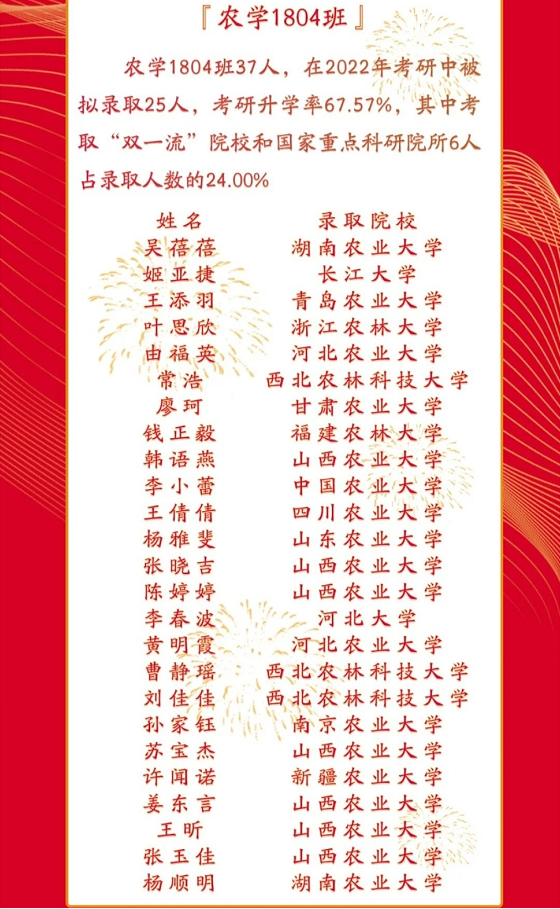 『农学1804班』
农学1804班37人，在2022年考研中被
拟录取25人，考研升学率67.57%，其中考
取“双一流”院校和国家重点科研院所6人
占录取人数的24.00%
姓名 录取院校
吴蓓蓓 湖南农业大学
姬亚捷 长江大学
王添羽 青岛农业大学
叶思欣 浙江农林大学
由福英 河北农业大学
常浩 西北农林科技大学
廖珂 甘肃农业大学
钱正毅 福建农林大学
韩语燕 山西农业大学
李小蕾 中国农业大学
王倩倩 四川农业大学
杨雅斐 山东农业大学
张晓吉 山西农业大学
陈婷婷 山西农业大学
李春波 河北大学
黄明霞 河北农业大学
曹静瑶 西北农林科技大学
刘佳佳 西北农林科技大学
孙家钰 南京农业大学
苏宝杰 山西农业大学
许闻诺 新疆农业大学
姜东言 山西农业大学
王昕 山西农业大学
张玉佳 山西农业大学
杨顺明 湖南农业大学